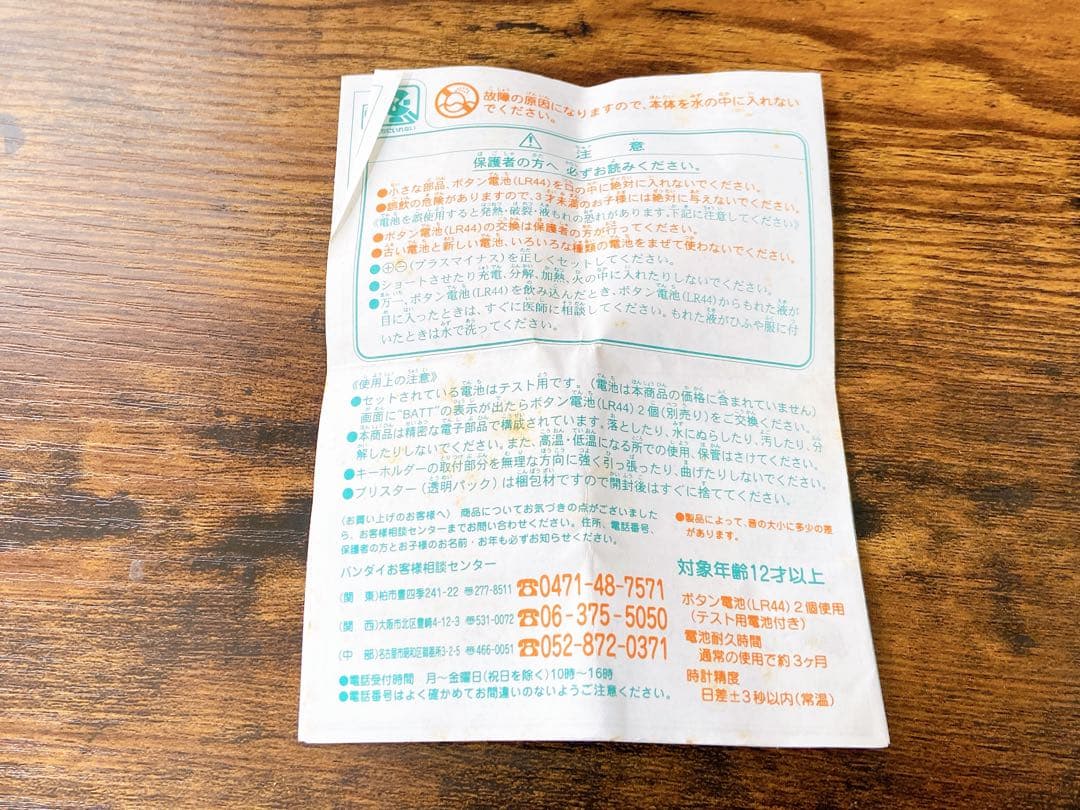 故障の原因になりますので、本体を水の中に入れない
でください。
注意
保護者の方へ 必ずお読みください。
●小さな部品、ボタン電池(LR44)を口の中に絶対に入れないでください。
●誤飲の危険がありますので、3才未満のお子様には絶対に与えないでください。
《電池を誤使用すると発熱・破裂・液もれの恐れがあります。下記に注意してください》
●ボタン電池(LR44)の交換は保護者の方が行ってください。
●古い電池と新しい電池、いろいろな種類の電池をまぜて使わないでください。
●⊕⊖(プラスマイナス)を正しくセットしてください。
●ショートさせたり充電、分解、加熱、火の中に入れたりしないでください。
●万一、ボタン電池(LR44)を飲み込んだとき、ボタン電池(LR44)からもれた液が
目に入ったときは、すぐに医師に相談してください。もれた液がひふや服に付
いたときは水で洗ってください。
《使用上の注意》
●セットされている電池はテスト用です。(電池は本商品の価格に含まれていません)
画面に"BATT"の表示が出たらボタン電池(LR44)2個(別売り)をご交換ください。
●本商品は精密な電子部品で構成されています。落としたり、水にぬらしたり、汚したり、分
解したりしないでください。また、高温・低温になる所での使用、保管はさけてください。
●キーホルダーの取付部分を無理な方向に強く引っ張ったり、曲げたりしないでください。
●ブリスター(透明パック)は梱包材ですので開封後はすぐに捨ててください。
(お買い上げのお客様へ) 商品についてお気づきの点がございました
ら、お客様相談センターまでお問い合わせください。住所、電話番号、
保護者の方とお子様のお名前・お年も必ずお知らせください。
●製品によって、音の大小に多少の差
があります。
バンダイお客様相談センター
(関 東)柏市豊四季241-22 〒277-8511 ☎0471-48-7571
(関 西)大阪市北区豊崎4-12-3 〒531-0072 ☎06-375-5050
(中 部)名古屋市昭和区御器所3-2-5 〒466-0051 ☎052-872-0371
●電話受付時間 月〜金曜日(祝日を除く)10時〜16時
●電話番号はよく確かめてお間違いのないようご注意ください。
対象年齢12才以上
ボタン電池(LR44)2個使用
(テスト用電池付き)
電池耐久時間
通常の使用で約3ヶ月
時計精度
日差±3秒以内(常温)